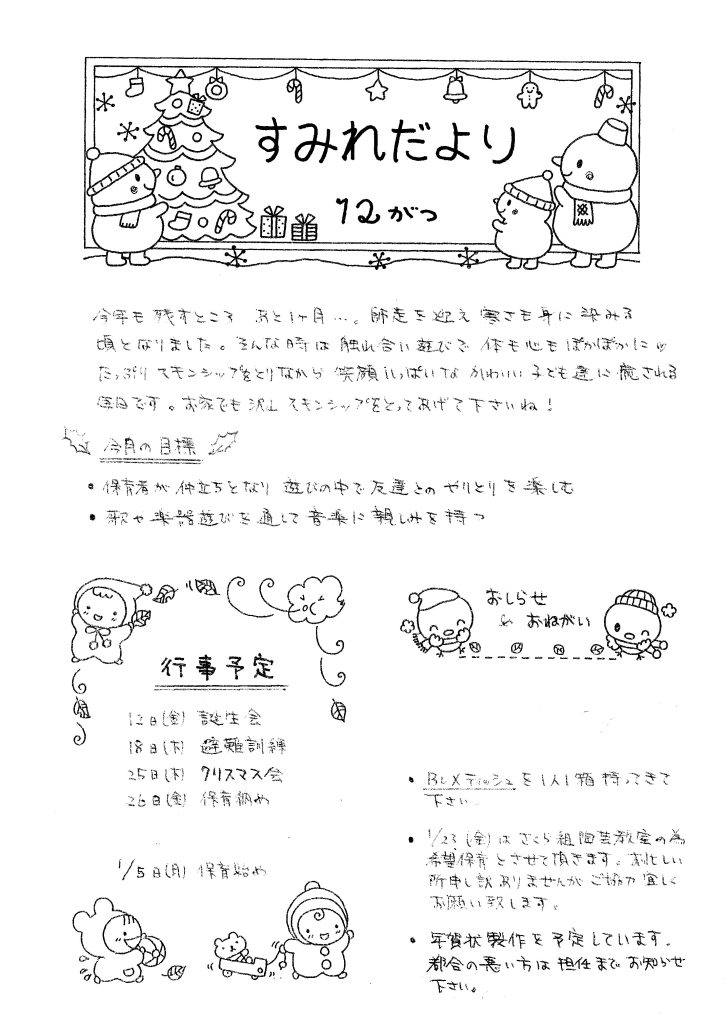 すみれだより
12がつ
今年も残すところ あと1ヶ月…。師走を迎え 寒さも身に染みる
頃となりました。そんな時は 触れ合い遊びで 体も心もぽかぽかに
たっぷり スキンシップをとりながら 笑顔いっぱいな かわいい 子ども達に 癒される
毎日です。お家でも沢山 スキンシップをとってあげて下さいね！
今月の目標
• 保育者が仲立ちとなり 遊びの中で友達とのやりとりを楽しむ
• 歌や楽器遊びを通して音楽に親しみを持つ
行事予定
12日(金) 誕生会
18日(木) 避難訓練
25日(木) クリスマス会
26日(金) 保育納め
1/5日(月) 保育始め
おしらせ
& おねがい
• BOXティッシュを1人1箱持ってきて
下さい。
• 1/23(金)はさくら組陶芸教室の為
希望保育とさせて頂きます。お忙しい
所申し訳ありませんがご協力宜しく
お願い致します。
• 年賀状製作を予定しています。
都合の悪い方は担任までお知らせ
下さい。